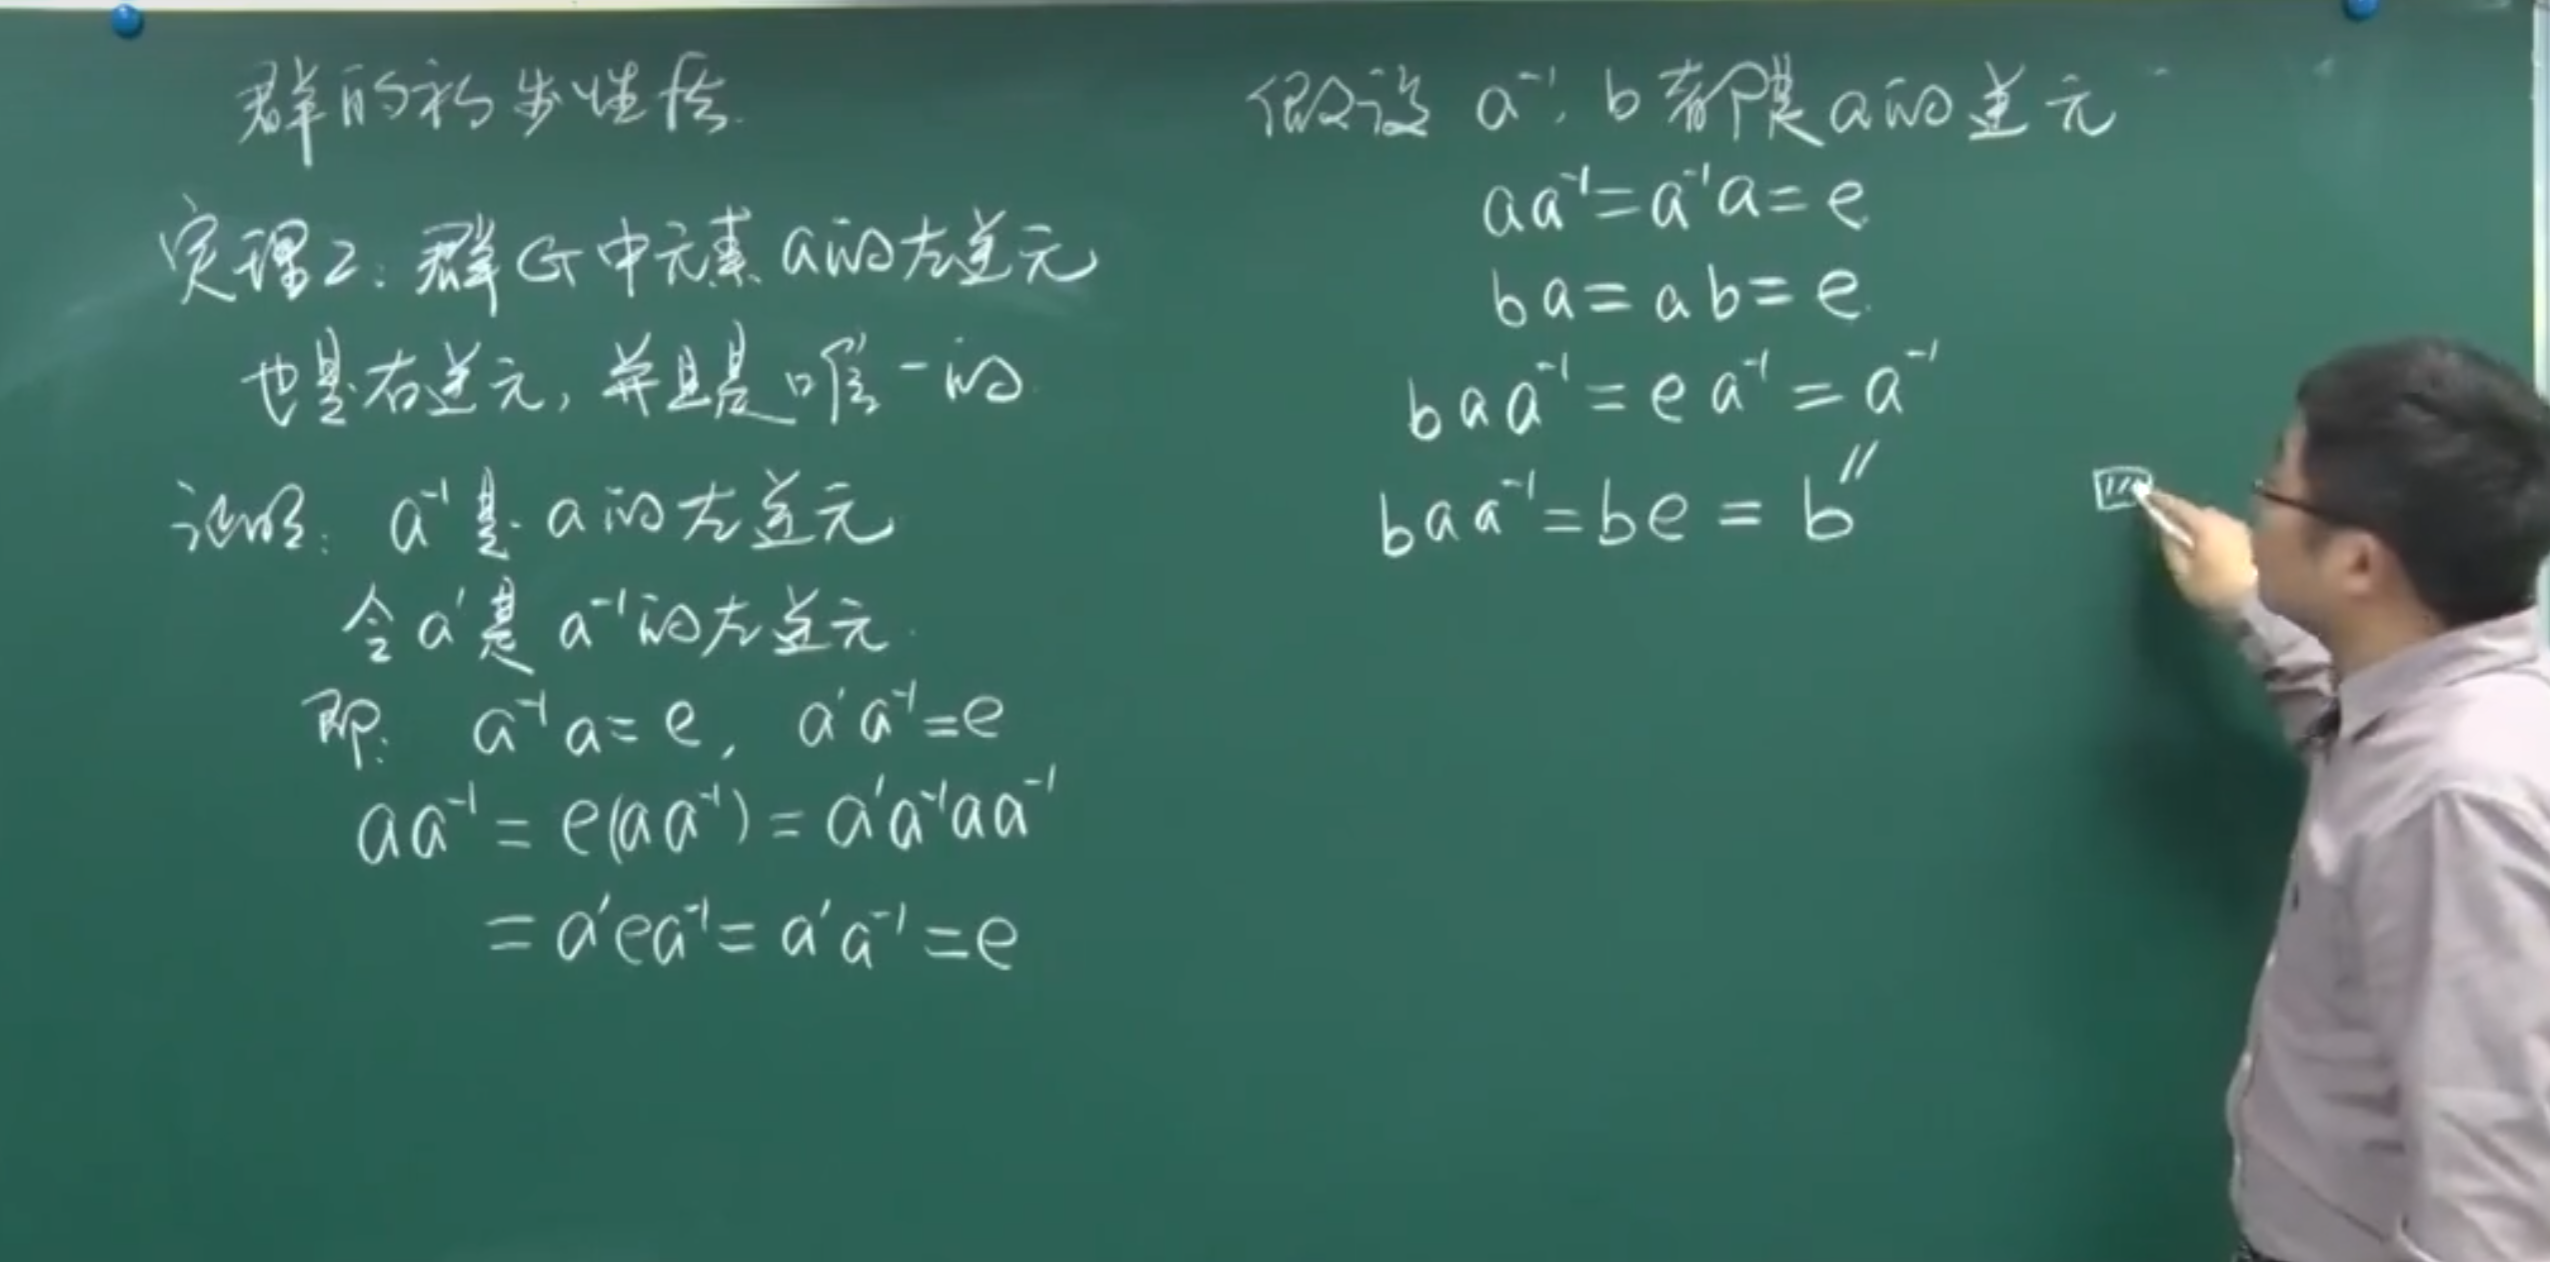 群的初步性质
定理2: 群G中元素a的左逆元
也是右逆元, 并且是唯一的
证明: a⁻¹是a的左逆元
令a′是a⁻¹的左逆元.
即: a⁻¹a=e, a′a⁻¹=e
aa⁻¹=e(aa⁻¹)=a′a⁻¹aa⁻¹
=a′ea⁻¹=a′a⁻¹=e
假设 a⁻¹, b都是a的逆元
aa⁻¹=a⁻¹a=e
ba=ab=e.
baa⁻¹=ea⁻¹=a⁻¹
//
baa⁻¹=be=b